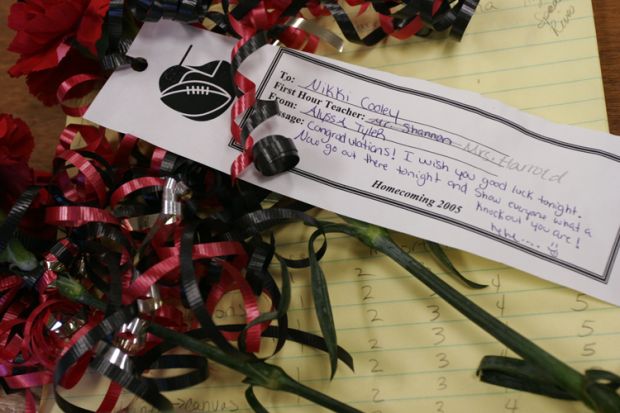 To: Nikki Cooley
First Hour Teacher: Mr. Shannon Mrs. Harrold
From: Alyssa Tyler
Message: Congratulations! I wish you good luck tonight.
Now go out there tonight and show everyone what a
knockout you are!
hehe....
Homecoming 2005
1 2 3 4 5
1 2 3 4 5
1 2 3 4 5
2 3 4
2 3 4